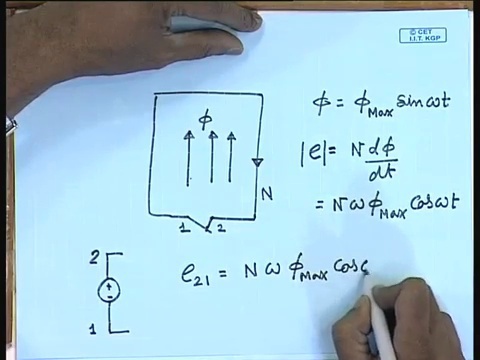 © CET
I.I.T. KGP
ϕ
ϕ = ϕMax sinωt
|e| = N dϕ/dt
= NωϕMax cosωt
N
1 2
2
+
-
1
e21 = N ω ϕMax cos